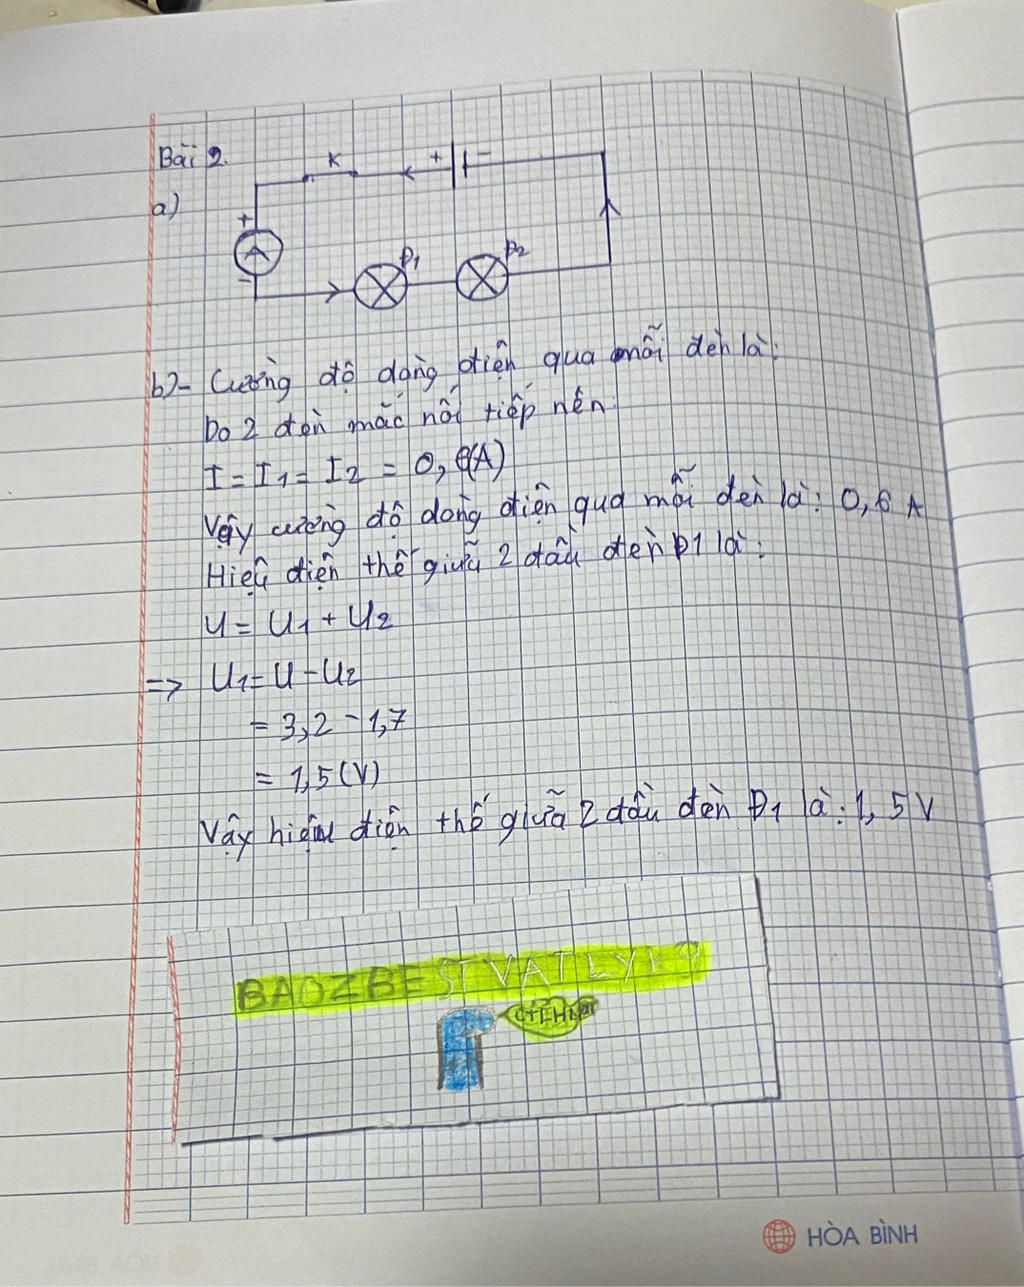 Bài 2.
K
+ -
a)
+
A
-
Đ1
Đ2
b)- Cường độ dòng điện qua mỗi đèn là:
Do 2 đèn mắc nối tiếp nên:
I = I1 = I2 = 0,6(A)
Vậy cường độ dòng điện qua mỗi đèn là: 0,6 A
Hiệu điện thế giữa 2 đầu đèn Đ1 là:
U = U1 + U2
=> U1 = U - U2
= 3,2 - 1,7
= 1,5 (V)
Vậy hiệu điện thế giữa 2 đầu đèn Đ1 là: 1,5V
BAOZBESTVATLYK9
HÒA BÌNH